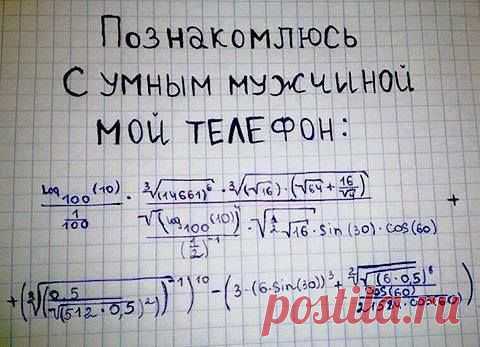 Познакомлюсь
с умным мужчиной
мой телефон:
log₁₀₀(10) / (1/100) · ∛((14661)⁶) · ∛((√16) · (√64 + 16/√4)) / (√((log₁₀₀(10))⁴ / (1/2)⁻¹) · √(1/2 √16) · sin(30) · cos(60)) +
+ (∛(0.5 / √((512 · 0,5)²))⁻¹)¹⁰ − (3 · (6 · sin(30))³ +
postila.ru